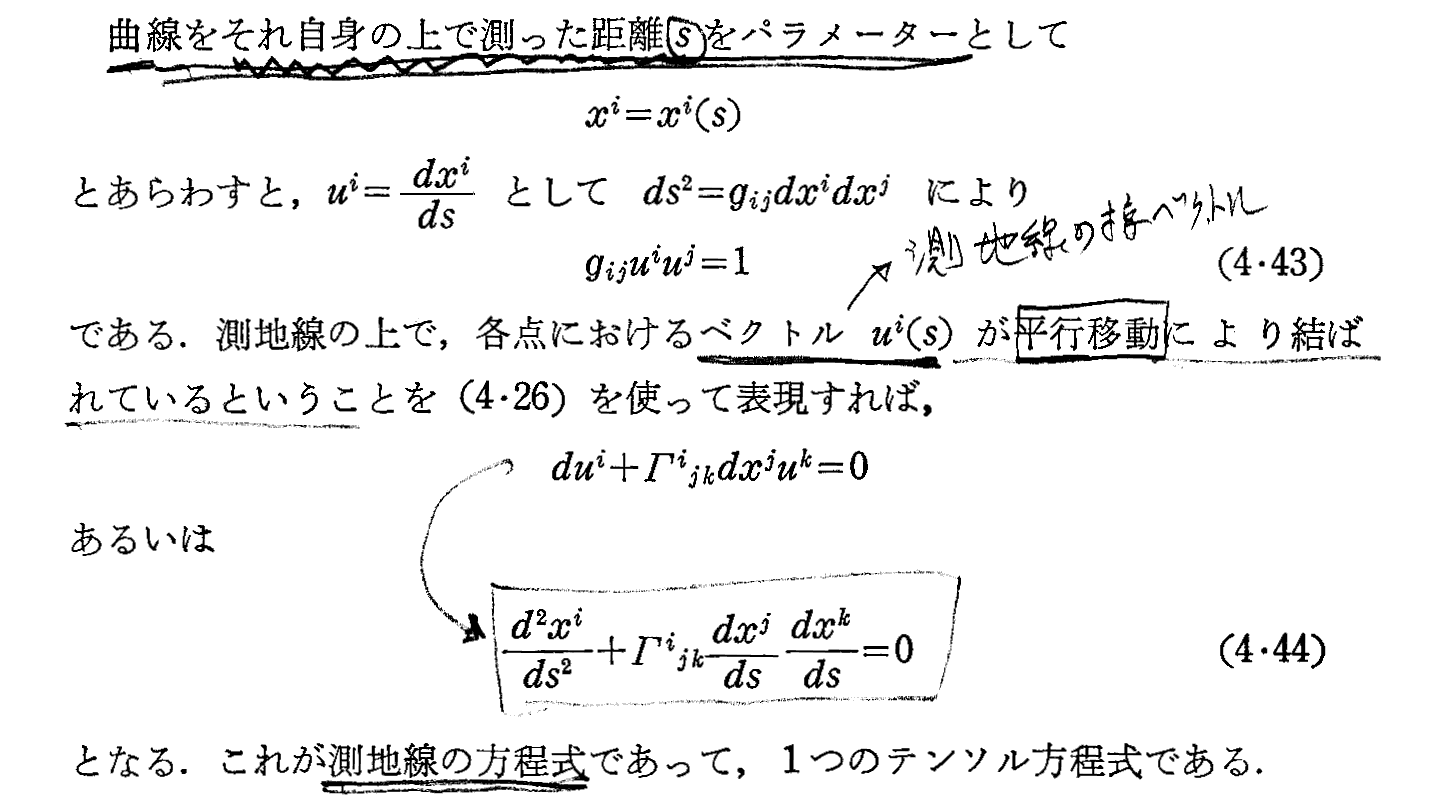 曲線をそれ自身の上で測った距離 s をパラメーターとして
xⁱ=xⁱ(s)
とあらわすと, uⁱ=dxⁱ/ds として ds²=gᵢⱼdxⁱdxʲ により
測地線の接ベクトル
gᵢⱼuⁱuʲ=1 (4・43)
である. 測地線の上で, 各点におけるベクトル uⁱ(s) が平行移動により結ば
れているということを (4・26) を使って表現すれば,
duⁱ+Γⁱⱼₖdxʲuᵏ=0
あるいは
d²xⁱ/ds²+Γⁱⱼₖ dxʲ/ds dxᵏ/ds=0 (4・44)
となる. これが測地線の方程式であって, 1つのテンソル方程式である.